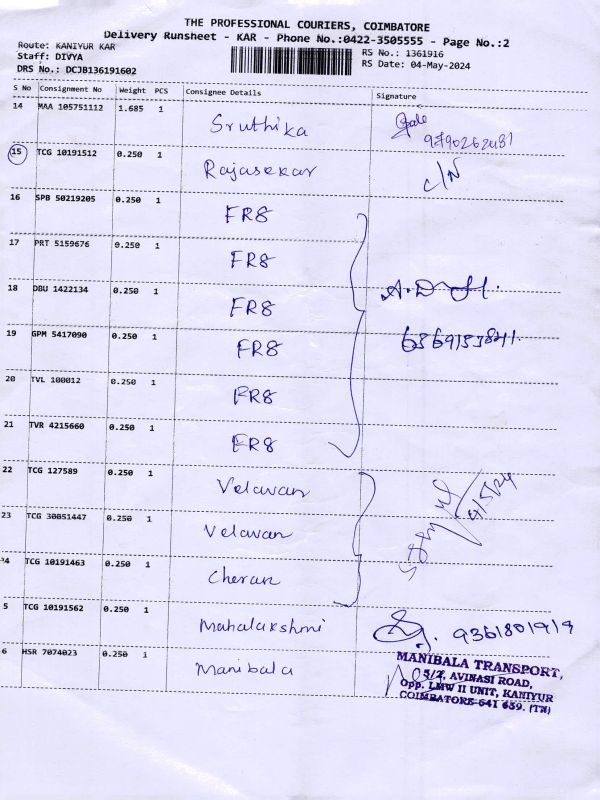 THE PROFESSIONAL COURIERS, COIMBATORE
Delivery Runsheet - KAR - Phone No.:0422-3505555 - Page No.:2
Route: KANIYUR KAR
RS No.: 1361916
Staff: DIVYA
RS Date: 04-May-2024
DRS No.: DCJB136191602
S No Consignment No Weight PCS Consignee Details Signature
14 MAA 105751112 1.685 1 Sruthika
15 TCG 10191512 0.250 1 Rajasekar C/N
16 SPB 50219205 0.250 1 FR8
17 PRT 5159676 0.250 1 FR8
18 DBU 1422134 0.250 1 FR8
19 GPM 5417090 0.250 1 FR8
20 TVL 100012 0.250 1 FR8
21 TVR 4215660 0.250 1 FR8
22 TCG 127589 0.250 1 Velavan
23 TCG 30051447 0.250 1 Velavan
24 TCG 10191463 0.250 1 Cheran
5 TCG 10191562 0.250 1 Mahalakshmi 9361801919
6 HSR 7074023 0.250 1 Manibala
MANIBALA TRANSPORT,
5/2, AVINASI ROAD,
Opp. LMW II UNIT, KANIYUR
COIMBATORE-641 659. (TN)